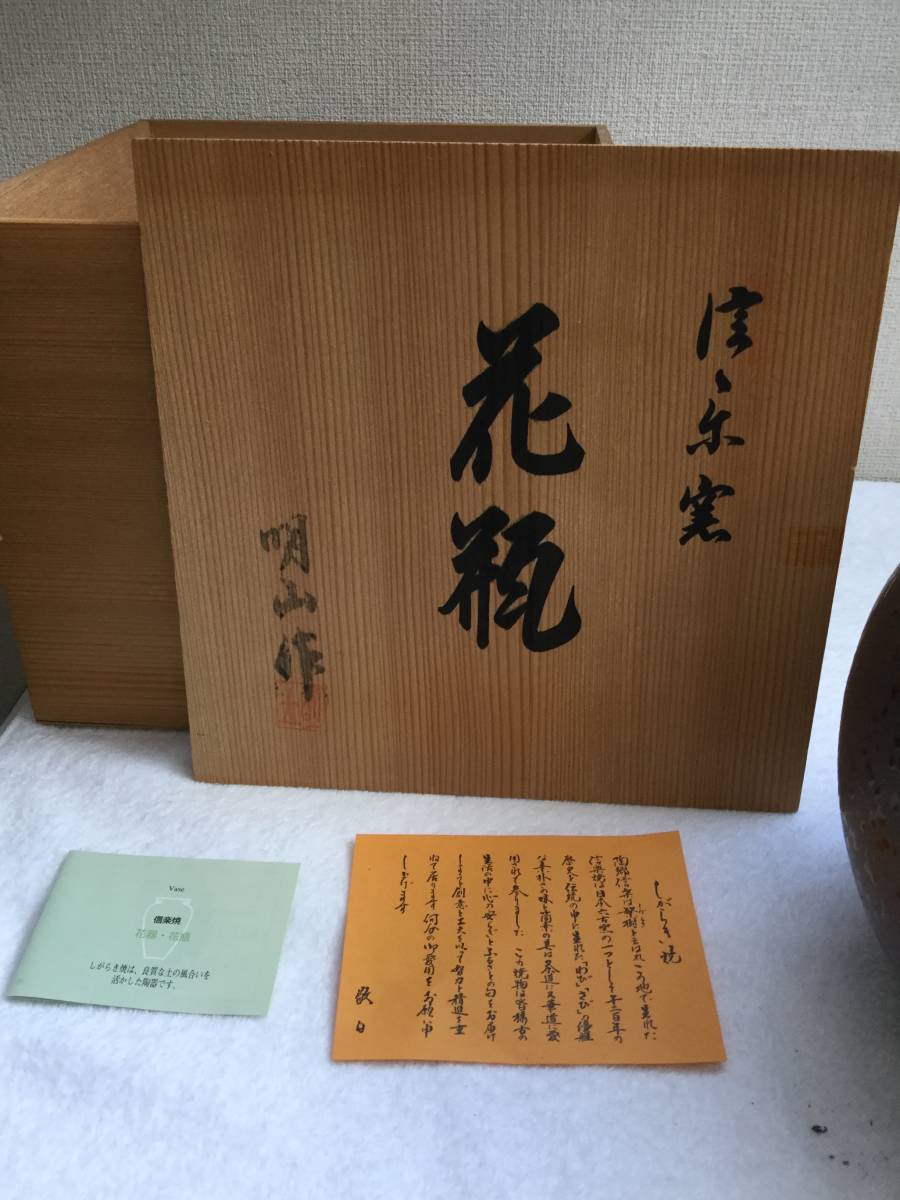 花瓶
明山作
Vase
信楽焼
花器・花瓶
しがらき焼は、良質な土の風合いを
活かした陶器です。
しがらき焼
陶郷信楽は聚樹と云はれこの地で生れた
信楽焼は日本六古窯の一つとして千二百年の
歴史と伝統の中に生れた「わび」「さび」の優雅
な素朴さの味と簡素の美は茶道に又華道に愛
用されて参りました この焼物は皆様方の
生活の中に心の安らぎとふるさとの匂をお届け
しようと創意と工夫を以って努力と精進を重
ねて居ります 何分の御愛用をお願い申
し上げます
敬白